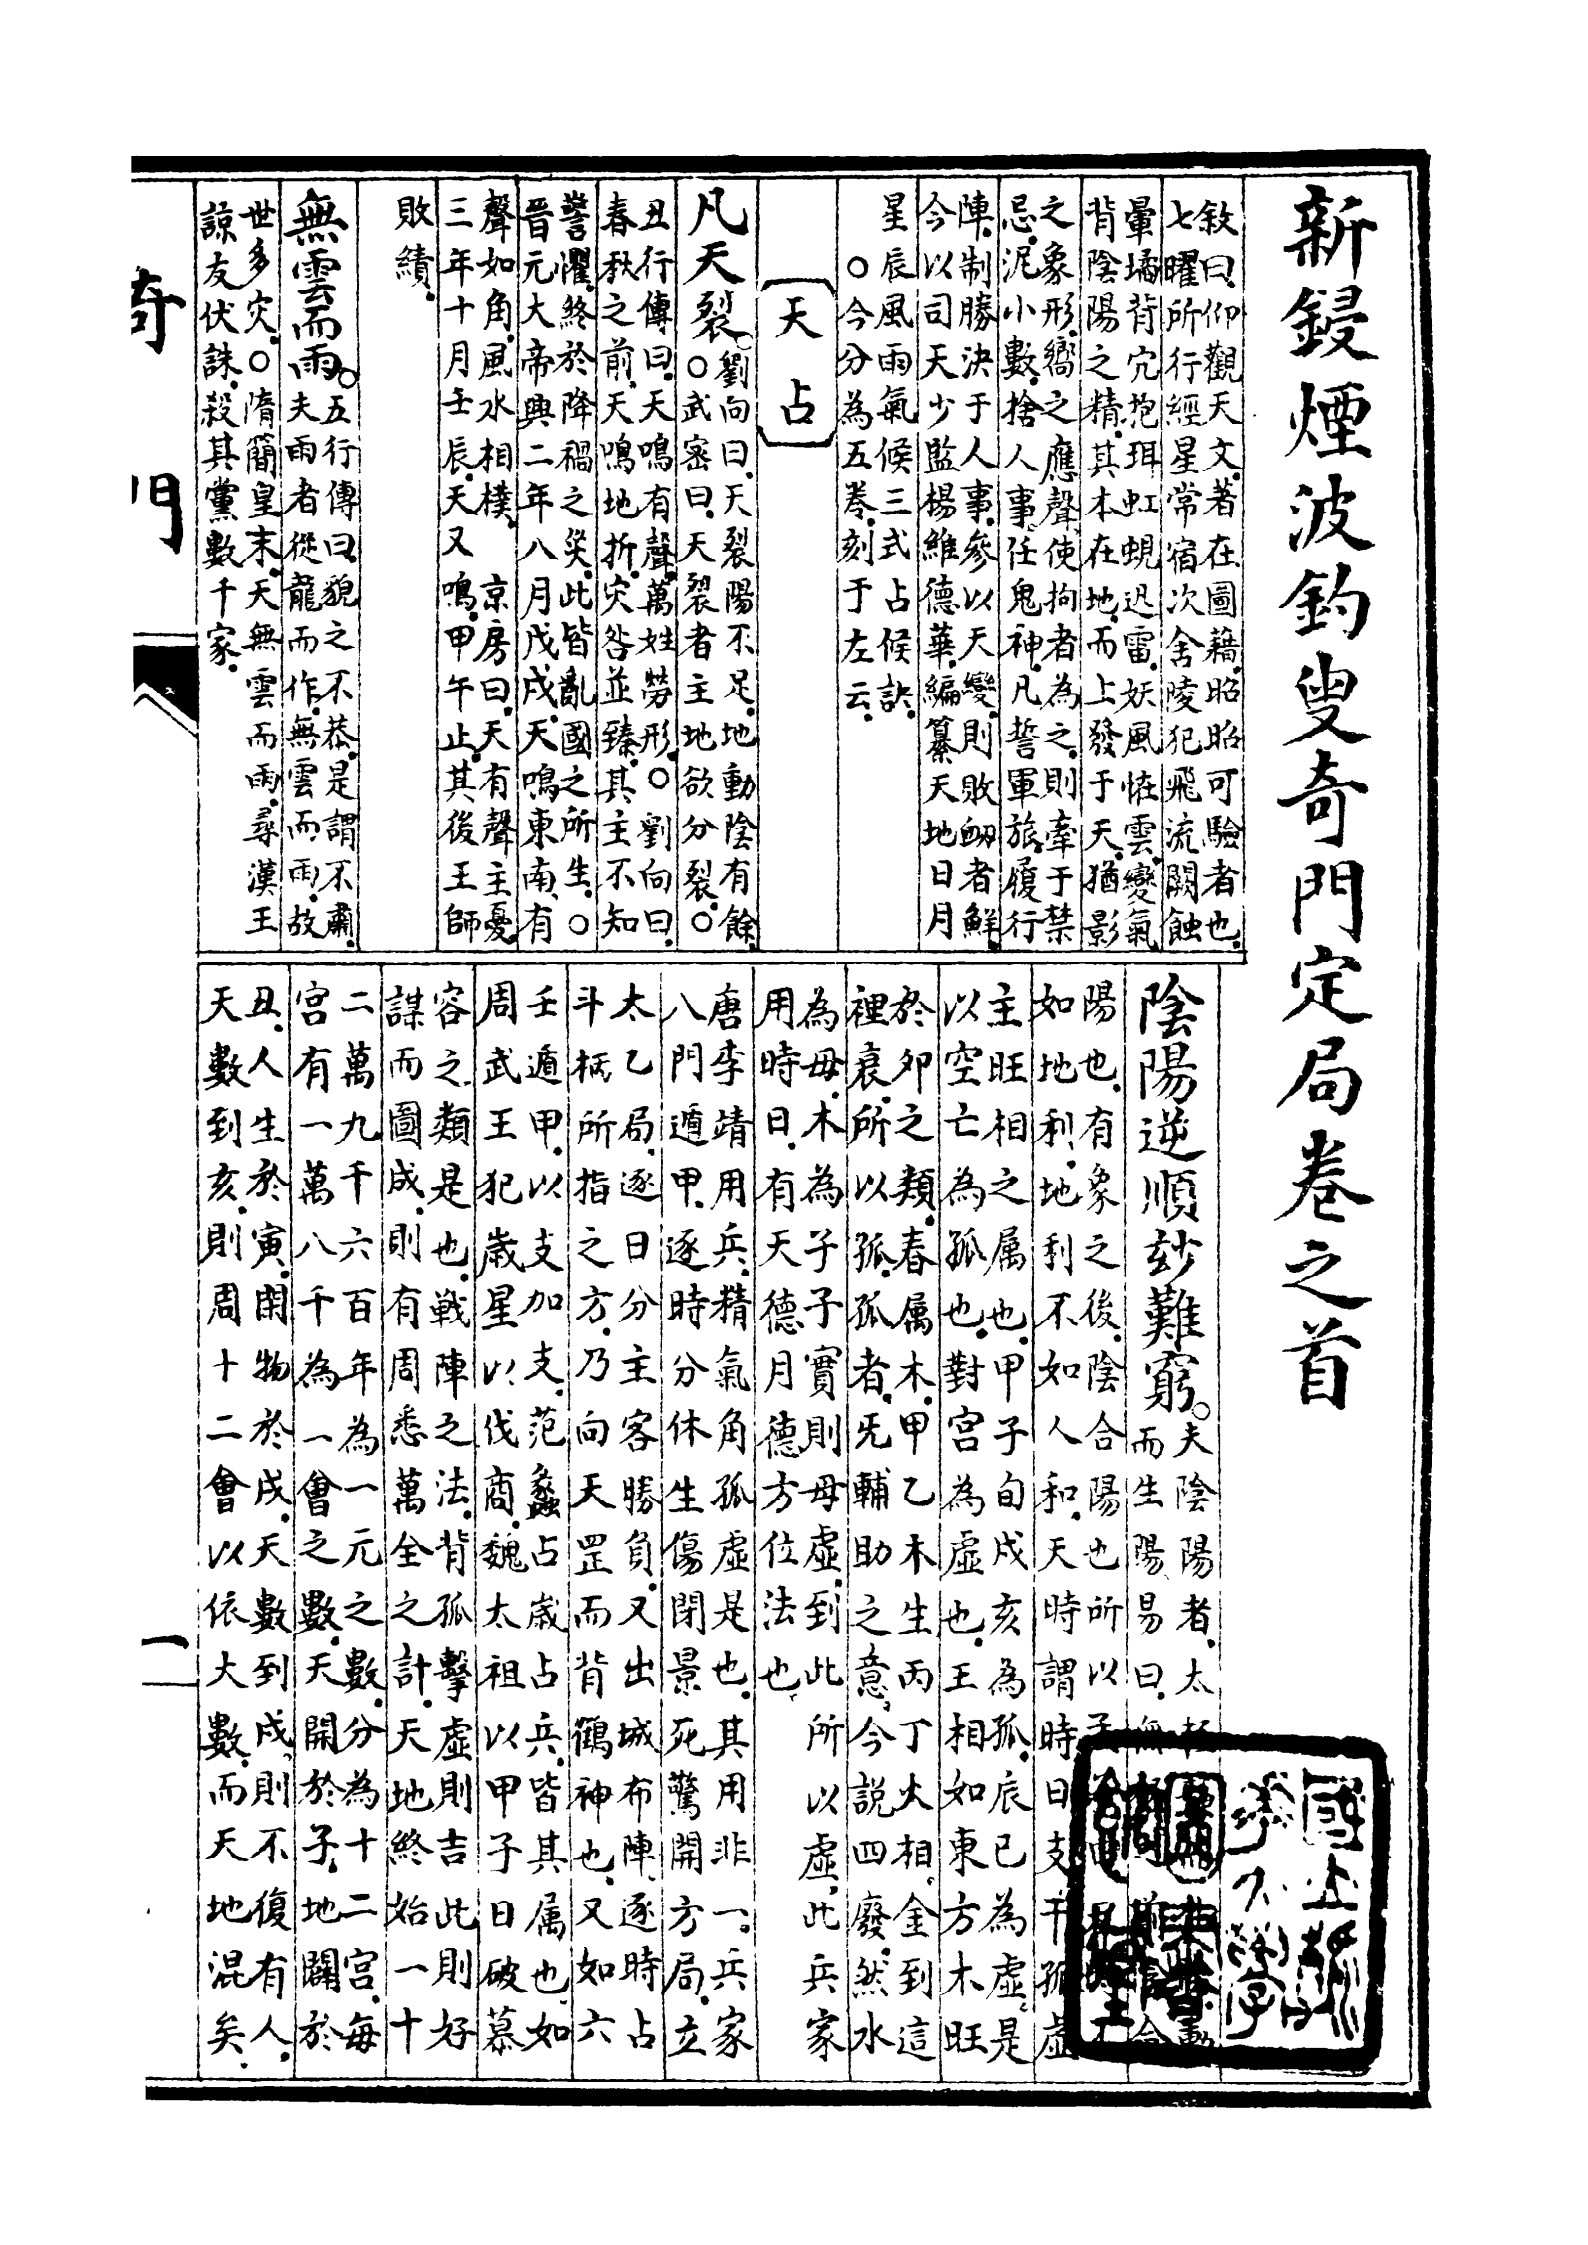 新鋟煙波釣叟奇門定局卷之首
敘曰仰觀天文著在圖籍昭昭可驗者也
七曜所行經星常宿次舍陵犯飛流鬭蝕
暈璚背穴抱珥虹蜺迅雷妖風怪雲變氣
背陰陽之精其本在地而上發于天猶影
之象形嚮之應聲使拘者為之則牽于禁
忌泥小數捨人事任鬼神凡誓軍旅履行
陣制勝決于人事參以天變則敗衂者鮮
今以司天少監楊維德華編纂天地日月
星辰風雨氣候三式占候訣
○今分為五卷刻于左云
天占
凡天裂○劉向曰天裂陽不足地動陰有餘
○武密曰天裂者主地欲分裂○
五行傳曰天鳴有聲萬姓勞形○劉向曰
春秋之前天鳴地折灾咎並臻其主不知
警懼終於降禍之災此皆亂國之所生○
晉元大帝興二年八月戊戌天鳴東南有
聲如角風水相樸 京房曰天有聲主憂
三年十月壬辰天又鳴甲午止其後王師
敗績
無雲而雨○五行傳曰貌之不恭是謂不肅
夫雨者從龍而作無雲而雨故
世多灾○隋簡皇末天無雲而雨尋漢王
諒友伏誅殺其黨數千家
陰陽逆順玅難窮○夫陰陽者太
而生陽易曰
陽也有象之後陰合陽也所以
如地利地利不如人和天時謂時日支干孤虛
主旺相之属也甲子旬戌亥為孤辰巳為虛是
以空亡為孤也對宮為虛也王相如東方木旺
於卯之類春属木甲乙木生丙丁火相金到這
裡衰所以孤孤者旡輔助之意今説四廢然水
為毋木為子子實則毋虛到此所以虛此兵家
用時日有天德月德方位法也
唐李靖用兵精氣角孤虛是也其用非一兵家
八門遁甲逐時分休生傷閉景死驚開方局立
太乙局逐日分主客勝負又出城布陣逐時占
斗柄所指之方乃向天罡而背鶴神也又如六
壬遁甲以支加支范蠡占歲占兵皆其属也如
周武王犯歲星以伐商魏太祖以甲子日破慕
容之類是也戰陣之法背孤擊虛則吉此則好
謀而圖成則有周悉萬全之計天地終始一十
二萬九千六百年為一元之數分為十二宮每
宮有一萬八千為一會之數天開於子地闢於
丑人生於寅開物於戌天數到戌則不復有人
天數到亥則周十二會以依大數而天地混矣
奇門
一